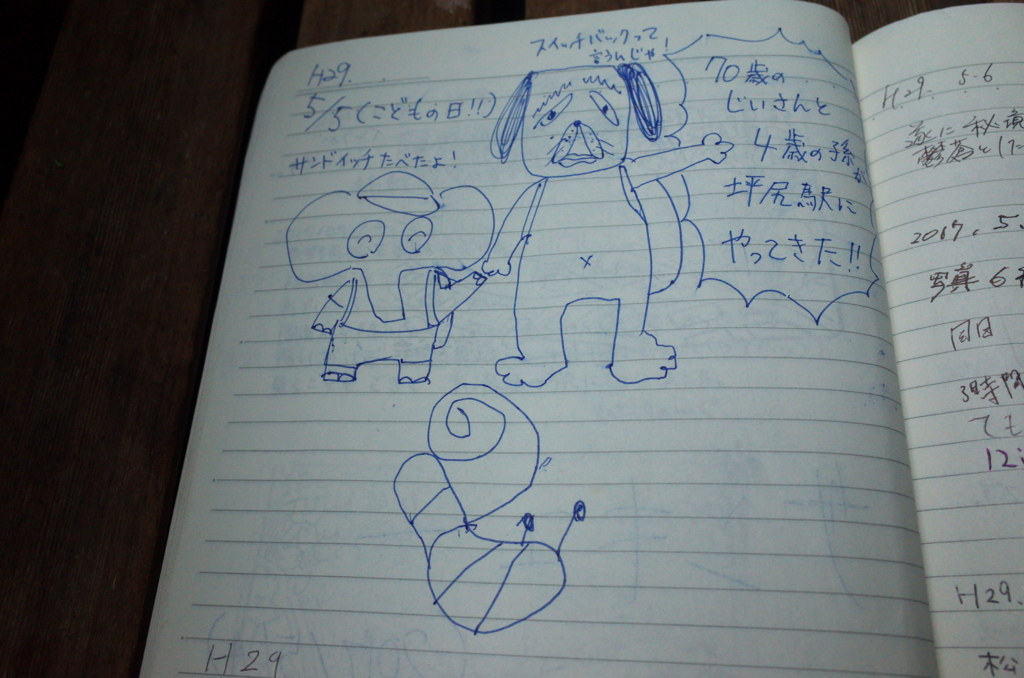 H29.
5/5(こどもの日!!)
サンドイッチたべたよ!
スイッチバックって
言うんじゃ!
70歳の
じいさんと
4歳の孫が
坪尻駅に
やってきた!!
H29
H29. 5.6
遂に秘境
鬱蒼とした
2017. 5.
写真
同日
3時間
ても
12
H29.
松